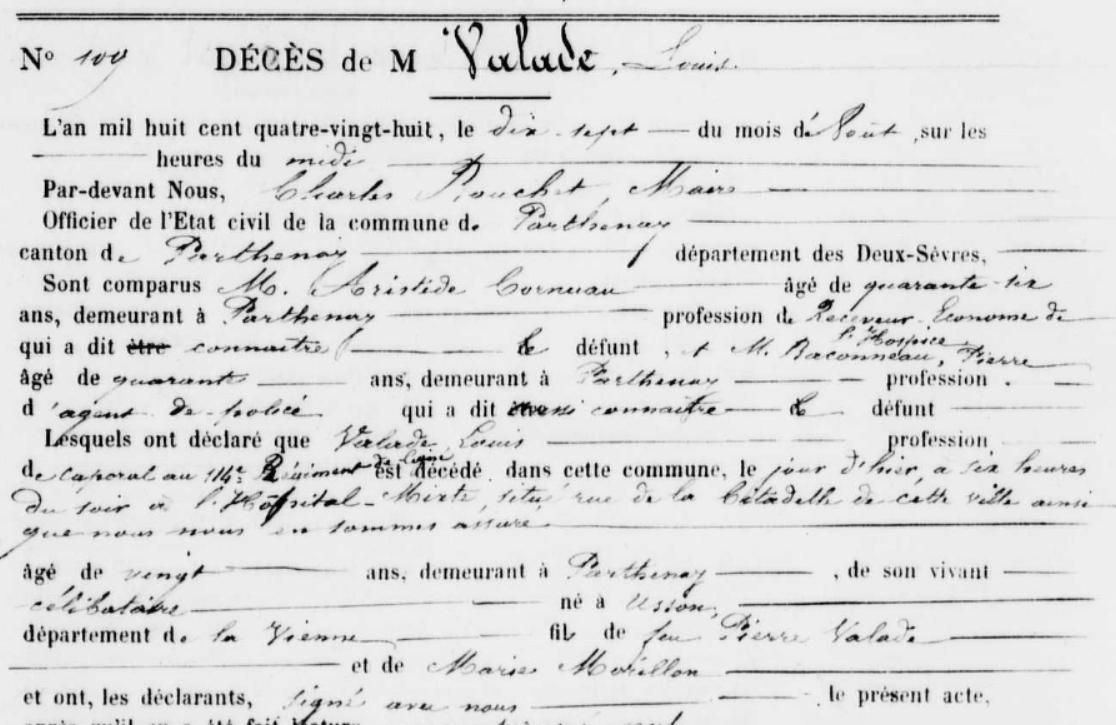 N° 109 DÉCÈS de M Valade, Louis
L'an mil huit cent quatre-vingt-huit, le dix-sept du mois d'Août, sur les
heures du midi
Par-devant Nous, Charles Rouchet, Maire
Officier de l'Etat civil de la commune de Parthenay
canton de Parthenay département des Deux-Sèvres,
Sont comparus M. Aristide Cornuau âgé de quarante-six
ans, demeurant à Parthenay profession de Receveur-Econome de
l'Hospice
qui a dit être connaître le défunt, et M. Baconneau, Pierre
âgé de quarante ans, demeurant à Parthenay profession
d'agent de police qui a dit connaître le défunt
Lesquels ont déclaré que Valade, Louis profession
de caporal au 114e Régiment de Ligne est décédé dans cette commune, le jour d'hier, à six heures
du soir à l'Hôpital-Mixte, situé rue de la Citadelle de cette ville ainsi
que nous nous en sommes assuré.
âgé de vingt ans, demeurant à Parthenay, de son vivant
célibataire né à Usson,
département de la Vienne fils de feu Pierre Valade
et de Marie Morillon
et ont, les déclarants, signé avec nous le présent acte,
après qu'il en a été fait lecture